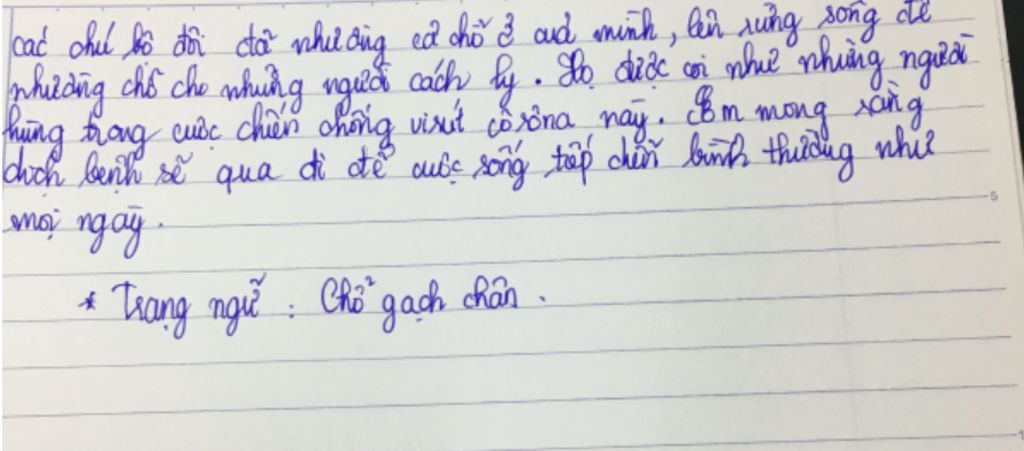 các chú bộ đội đã nhường cả chỗ ở của mình, lên rừng sống để
nhường chỗ cho những người cách ly. Họ được coi như những người
hùng trong cuộc chiến chống virút côrôna này. Em mong rằng
dịch bệnh sẽ qua đi để cuộc sống tiếp diễn bình thường như
mọi ngày.
* Trạng ngữ : Chỗ gạch chân.
5
1